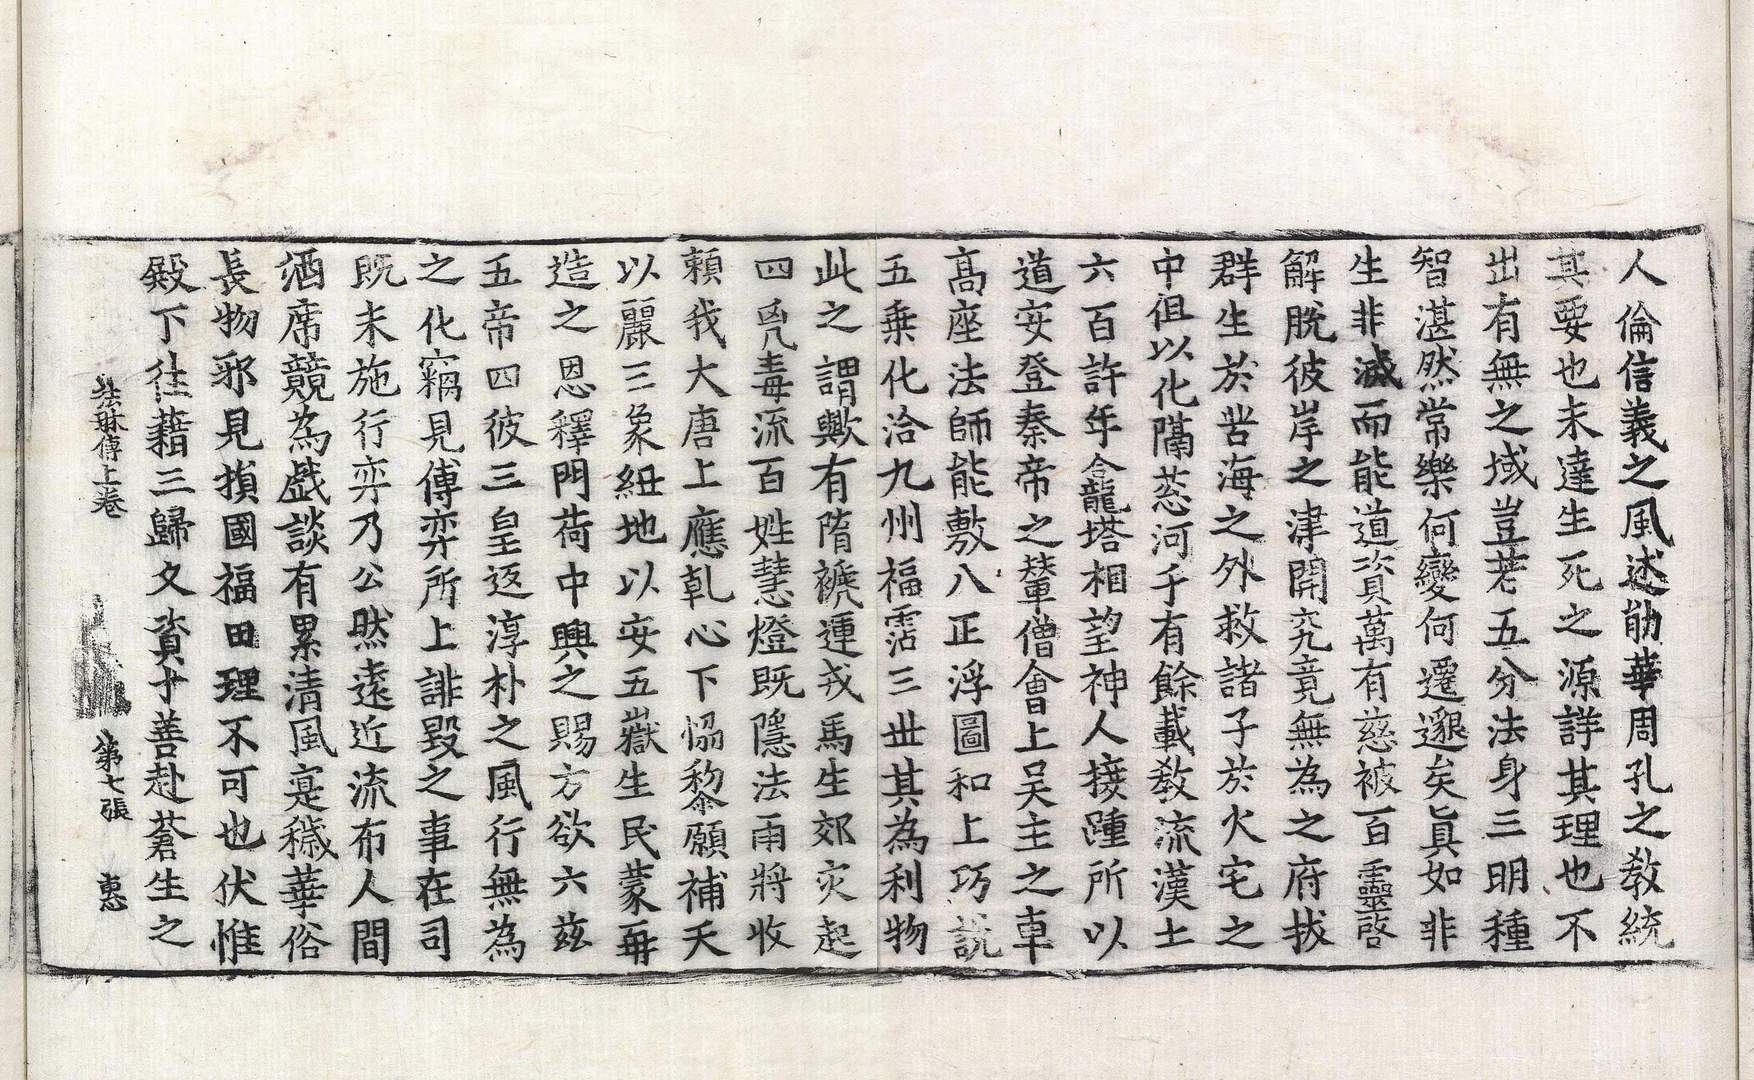 人倫信義之風述勛華周孔之教統
其要也未達生死之源詳其理也不
出有無之域豈若五分法身三明種
智湛然常樂何變何遷邈矣真如非
生非滅而能道資萬有慈被百靈啓
解脫彼岸之津開究竟無為之府拔
群生於苦海之外救諸子於火宅之
中但以化隔葱河千有餘載教流漢土
六百許年龕塔相望神人接踵所以
道安登秦帝之輦僧會上吳主之車
高座法師能敷八正浮圖和上巧說
五乗化洽九州福霑三世其為利物
此之謂歟有隋褫運戎馬生郊灾起
四㐫毒流百姓慧燈既隱法雨將收
賴我大唐上應乹心下恊黎願補天
以麗三象紐地以安五嶽生民蒙再
造之恩釋門荷中興之賜方欲六兹
五帝四彼三皇返淳朴之風行無為
之化竊見傅弈所上誹毀之事在司
既未施行弈乃公然遠近流布人間
酒席競為戲談有累清風寔穢華俗
長物邪見損國福田理不可也伏惟
殿下往藉三歸久資十善赴蒼生之
法琳傳上卷 第七張